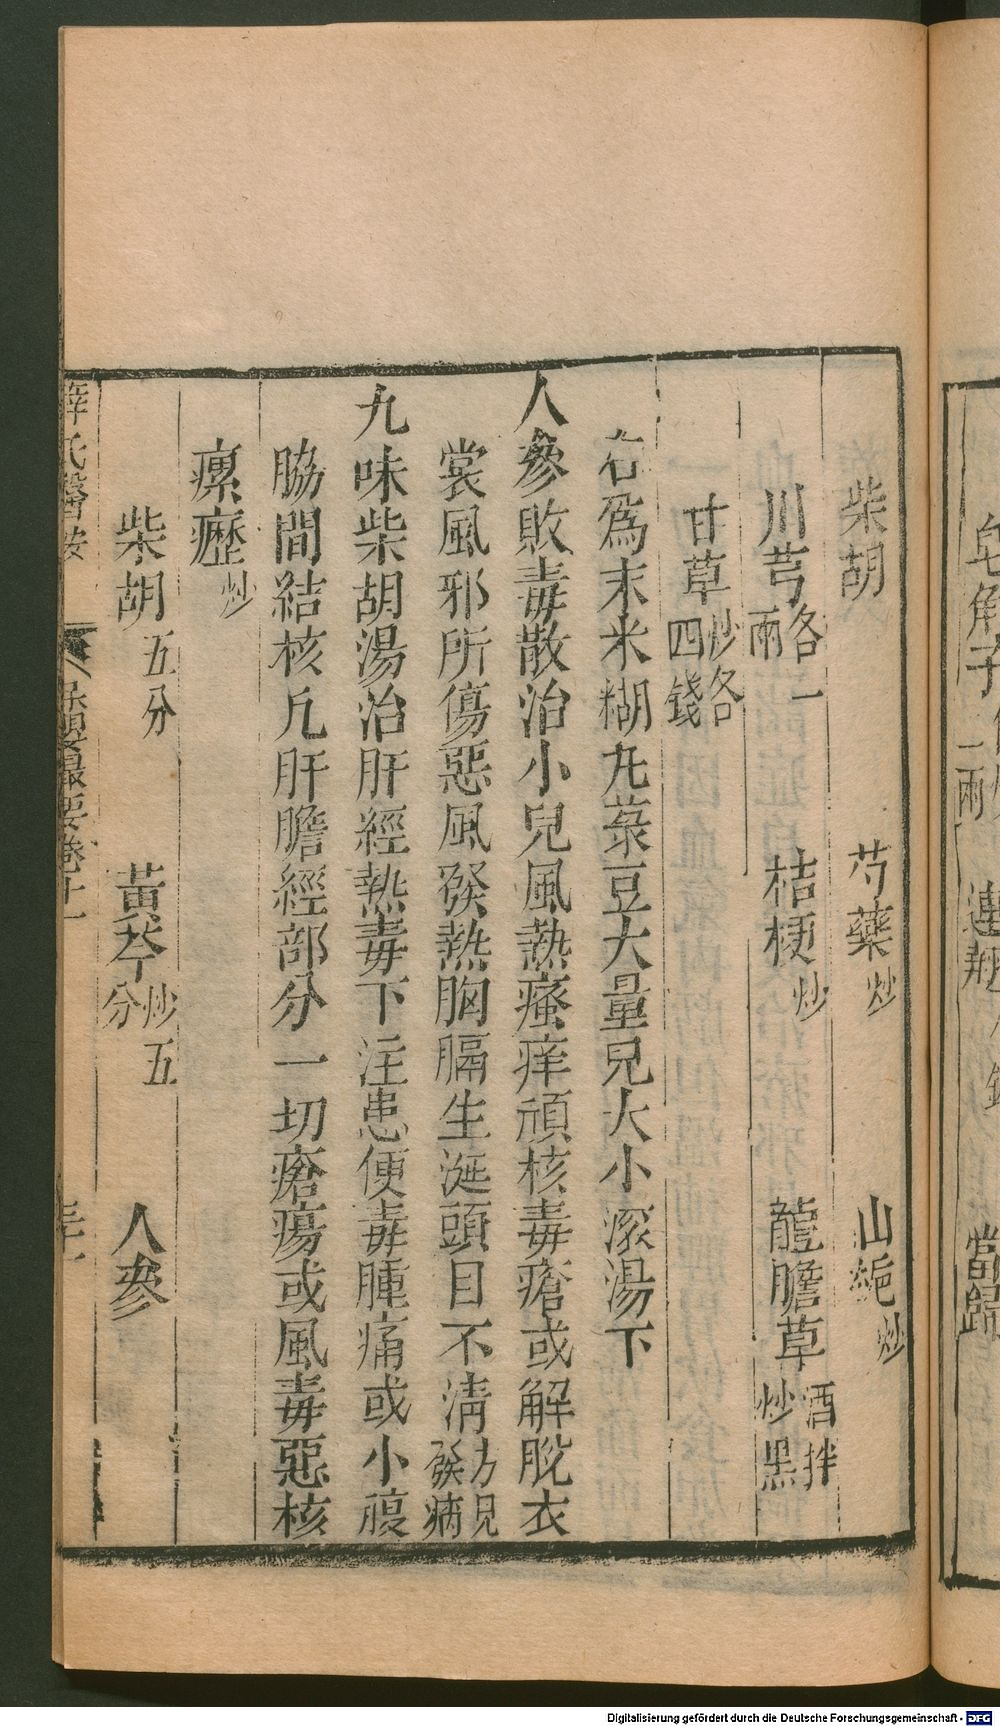 柴胡　芍藥炒　山梔炒
川芎各一兩　桔梗炒　龍膽草酒拌炒黑
甘草炒各四錢
右爲末米糊丸菉豆大量兒大小滚湯下
人參敗毒散治小兒風熱瘙痒頑核毒瘡或解脫衣
裳風邪所傷惡風發熱胸膈生涎頭目不清方見發痛
九味柴胡湯治肝經熱毒下注患便毒腫痛或小腹
脇間結核凡肝膽經部分一切瘡瘍或風毒惡核
瘰癧炒
柴胡五分　黃芩炒五分　人參
薛氏醫按　保嬰最要卷十一
當歸
Digitalisierung gefördert durch die Deutsche Forschungsgemeinschaft - DFG